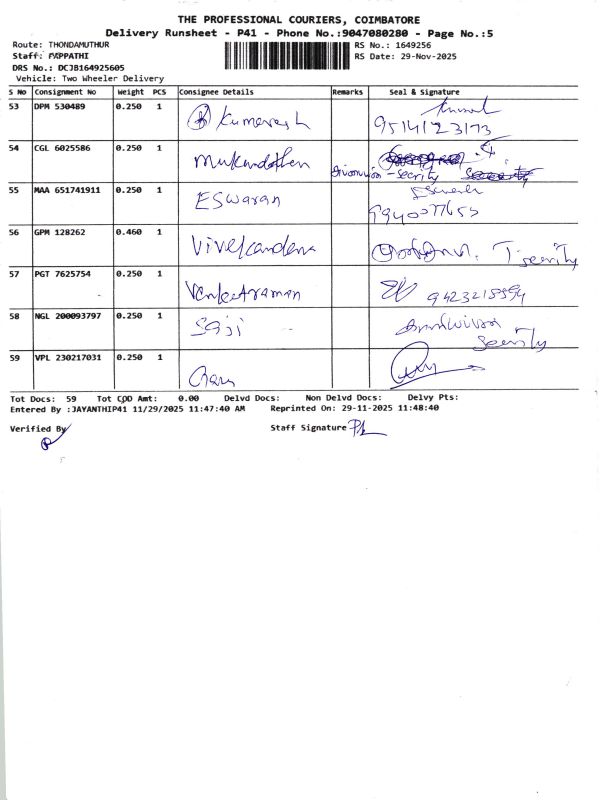 THE PROFESSIONAL COURIERS, COIMBATORE
Delivery Runsheet - P41 - Phone No.:9047080280 - Page No.:5
Route: THONDAMUTHUR RS No.: 1649256
Staff: PAPPATHI RS Date: 29-Nov-2025
DRS No.: DCJB164925605
Vehicle: Two Wheeler Delivery
S No Consignment No Weight PCS Consignee Details Remarks Seal & Signature
53 DPM 530489 0.250 1 Kumaresh
9514123173
54 CGL 6025586 0.250 1
security
55 MAA 651741911 0.250 1 ESwaran
56 GPM 128262 0.460 1
57 PGT 7625754 0.250 1 Venkatraman
58 NGL 200093797 0.250 1 Saji
59 VPL 230217031 0.250 1
Tot Docs: 59 Tot COD Amt: 0.00 Delvd Docs: Non Delvd Docs: Delvy Pts:
Entered By :JAYANTHIP41 11/29/2025 11:47:40 AM Reprinted On: 29-11-2025 11:48:40
Verified By Staff Signature